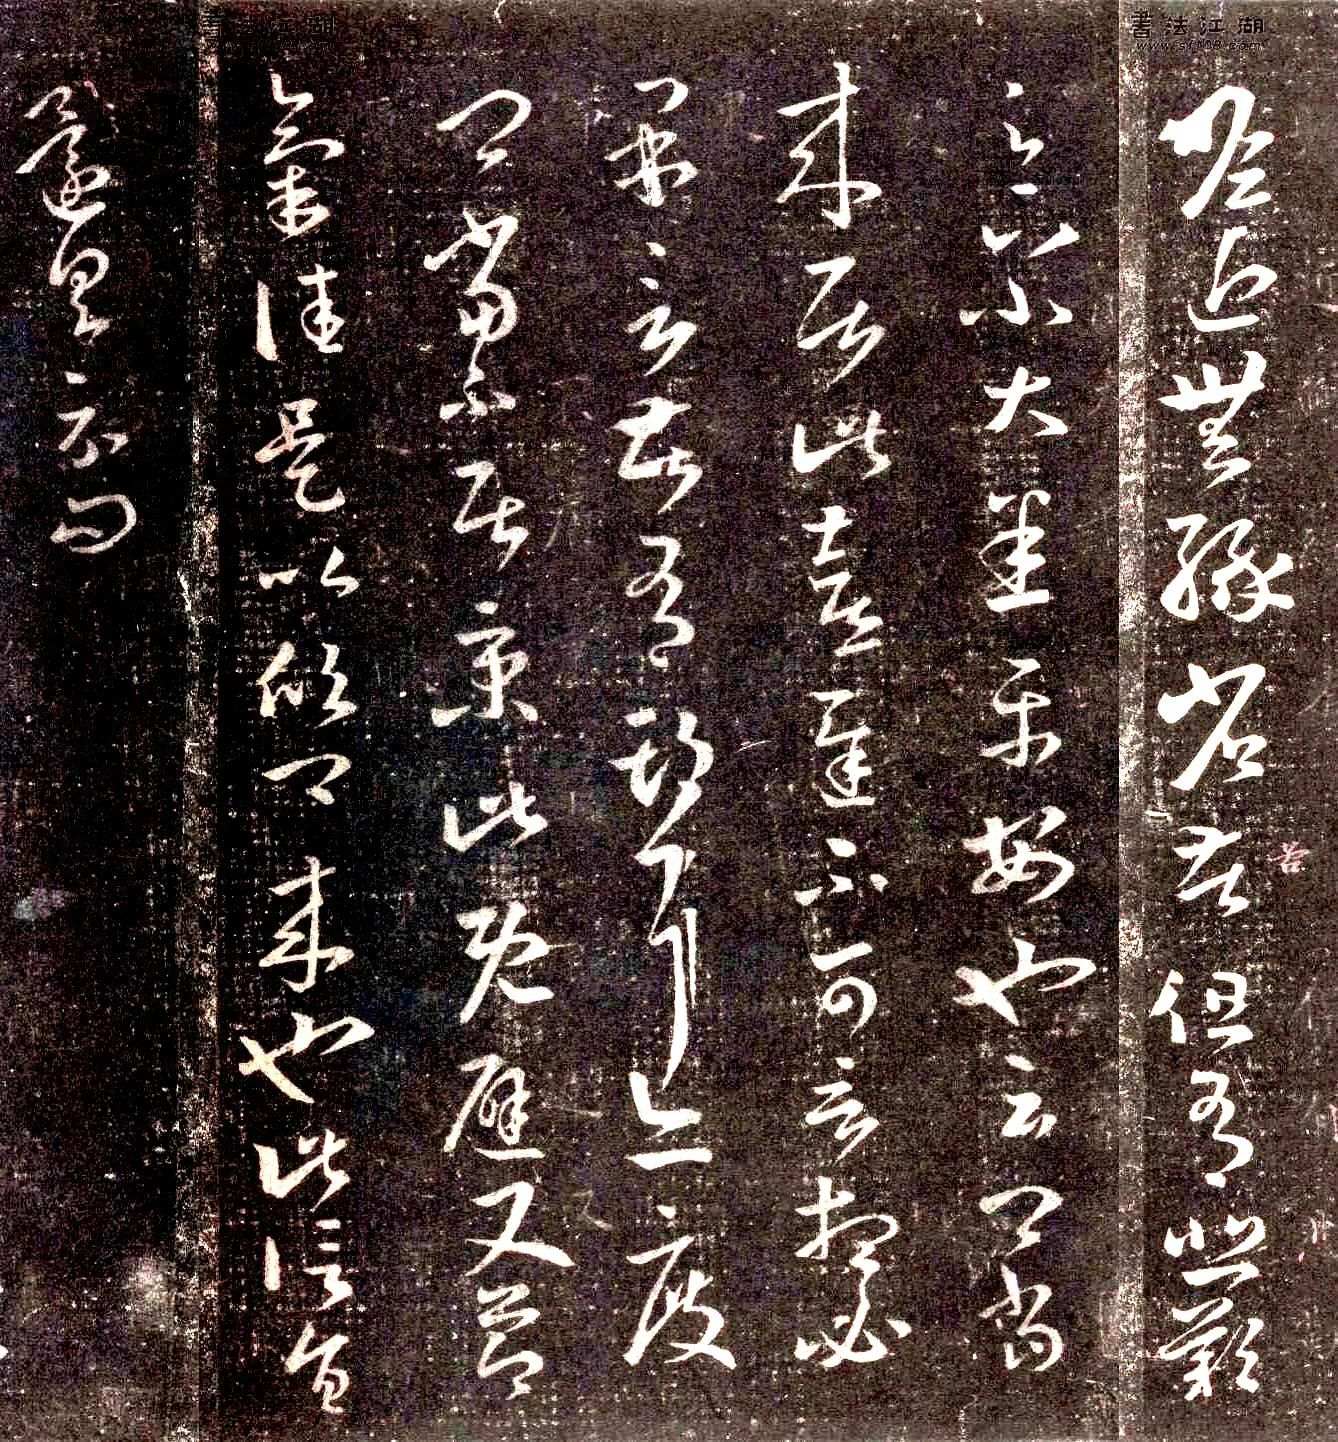 書法江湖
www.sf108.com
瞻近無緣省苦但有悲歎
足下小大悉平安也云卿當
來居此喜遲不可言想必
果言告有期耳亦度
卿當不居京此既避又節
氣佳是以欣卿來也此信旨
還具示問